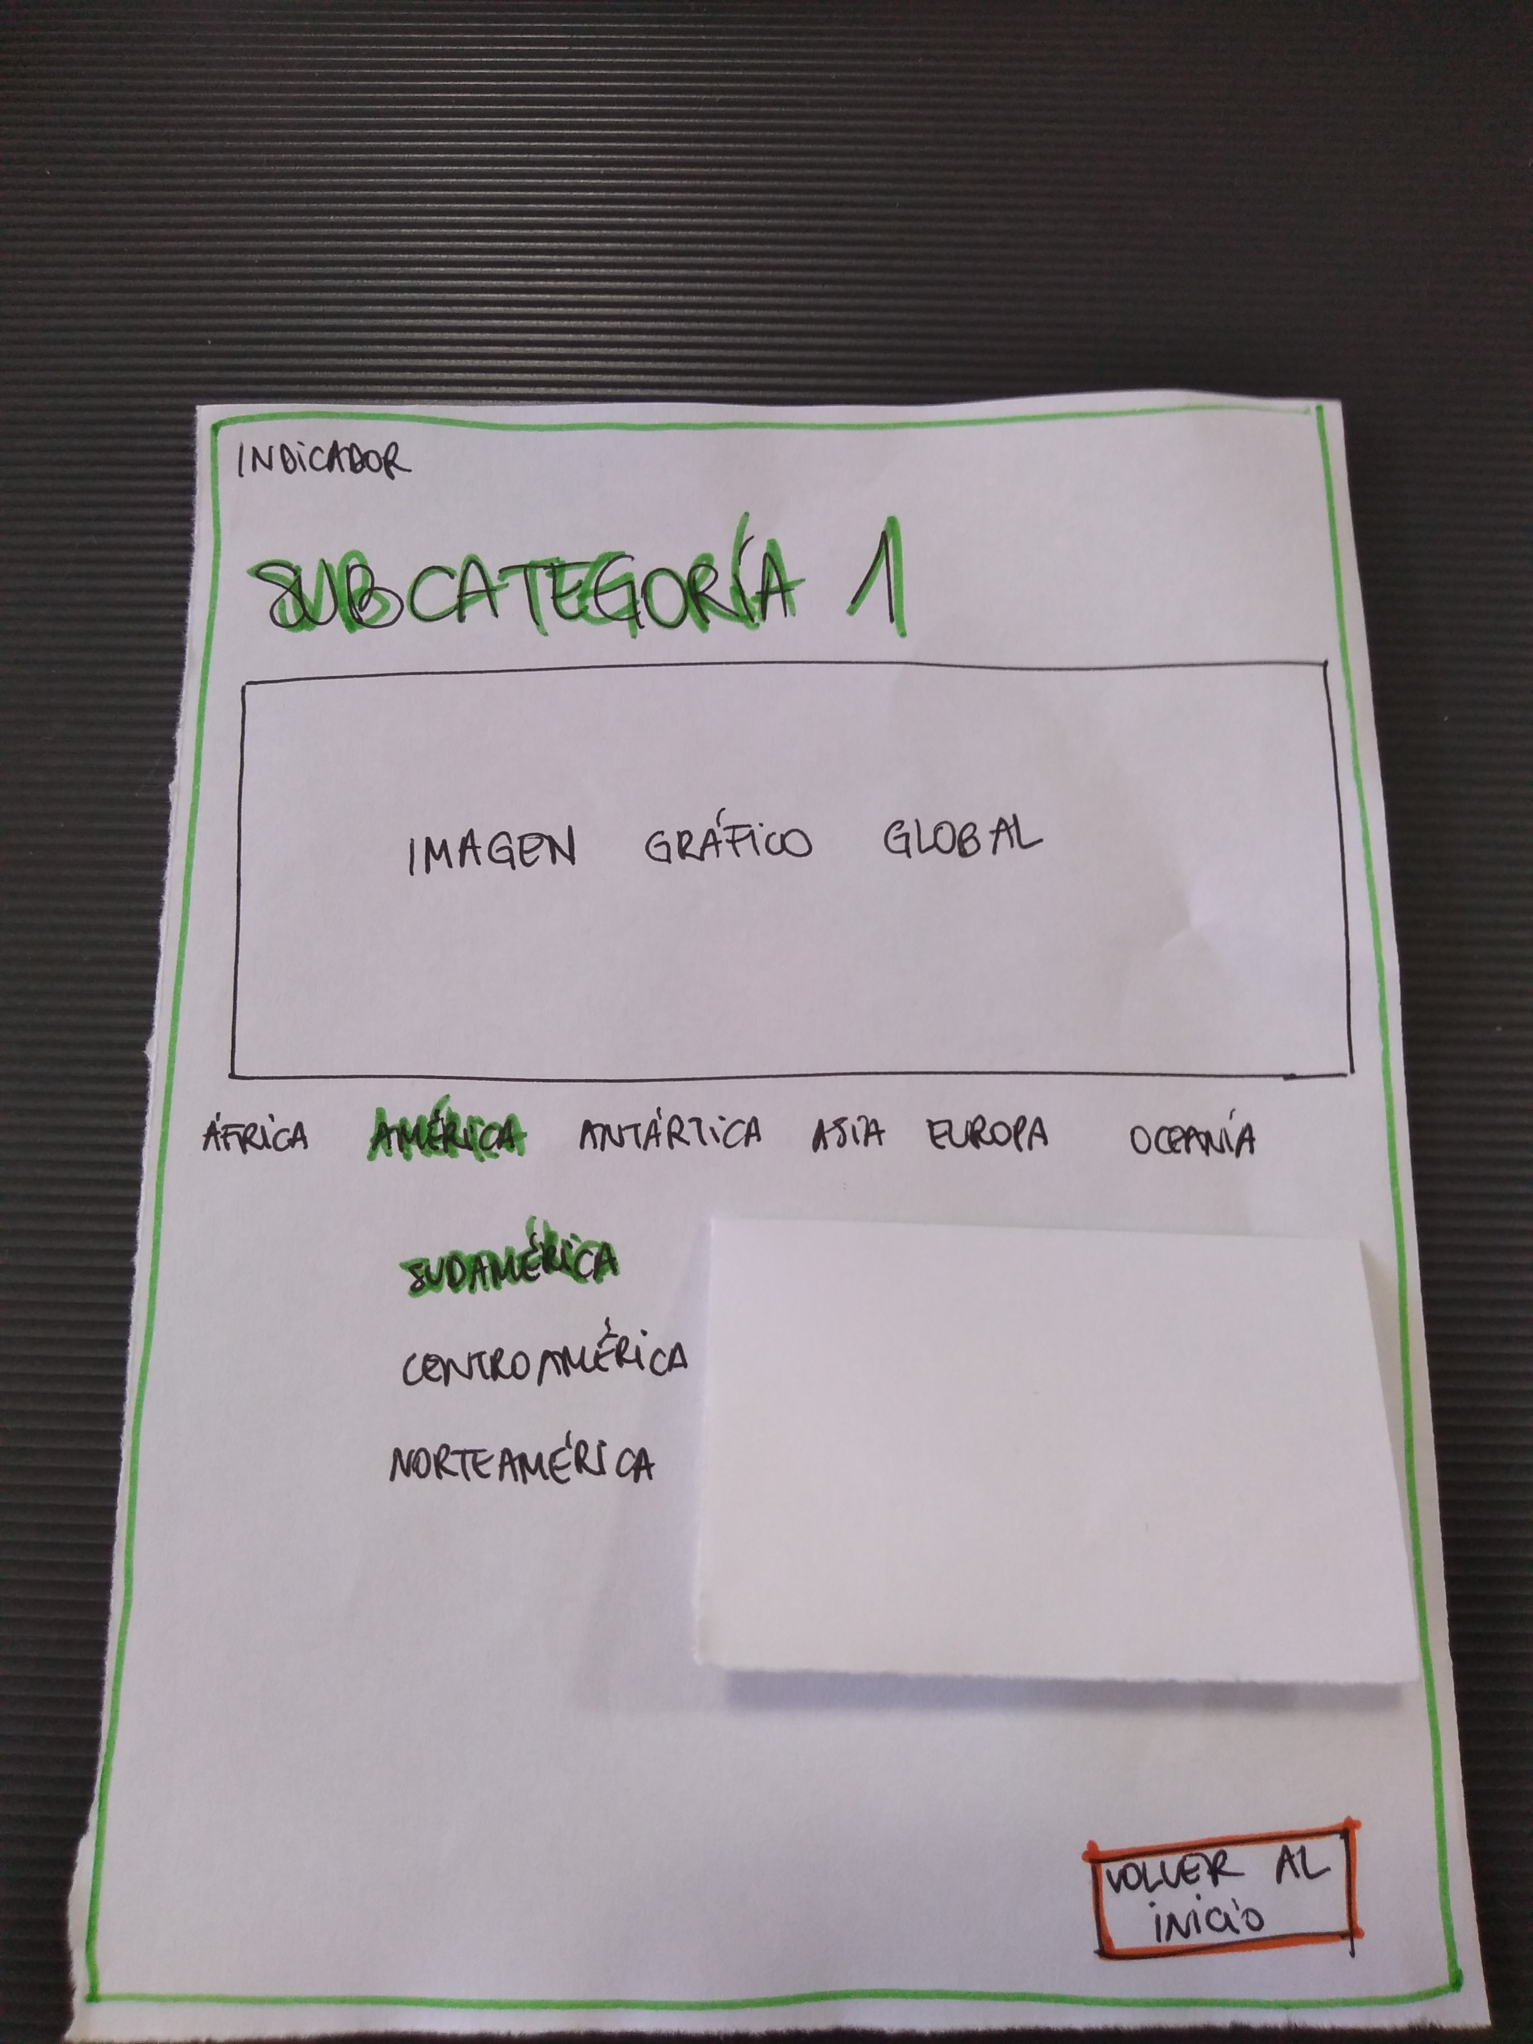 INDICADOR
SUBCATEGORÍA 1
IMAGEN GRÁFICO GLOBAL
ÁFRICA AMÉRICA ANTÁRTICA ASIA EUROPA OCEANÍA
SUDAMÉRICA
CENTROAMÉRICA
NORTEAMÉRICA
VOLVER AL
INICIO